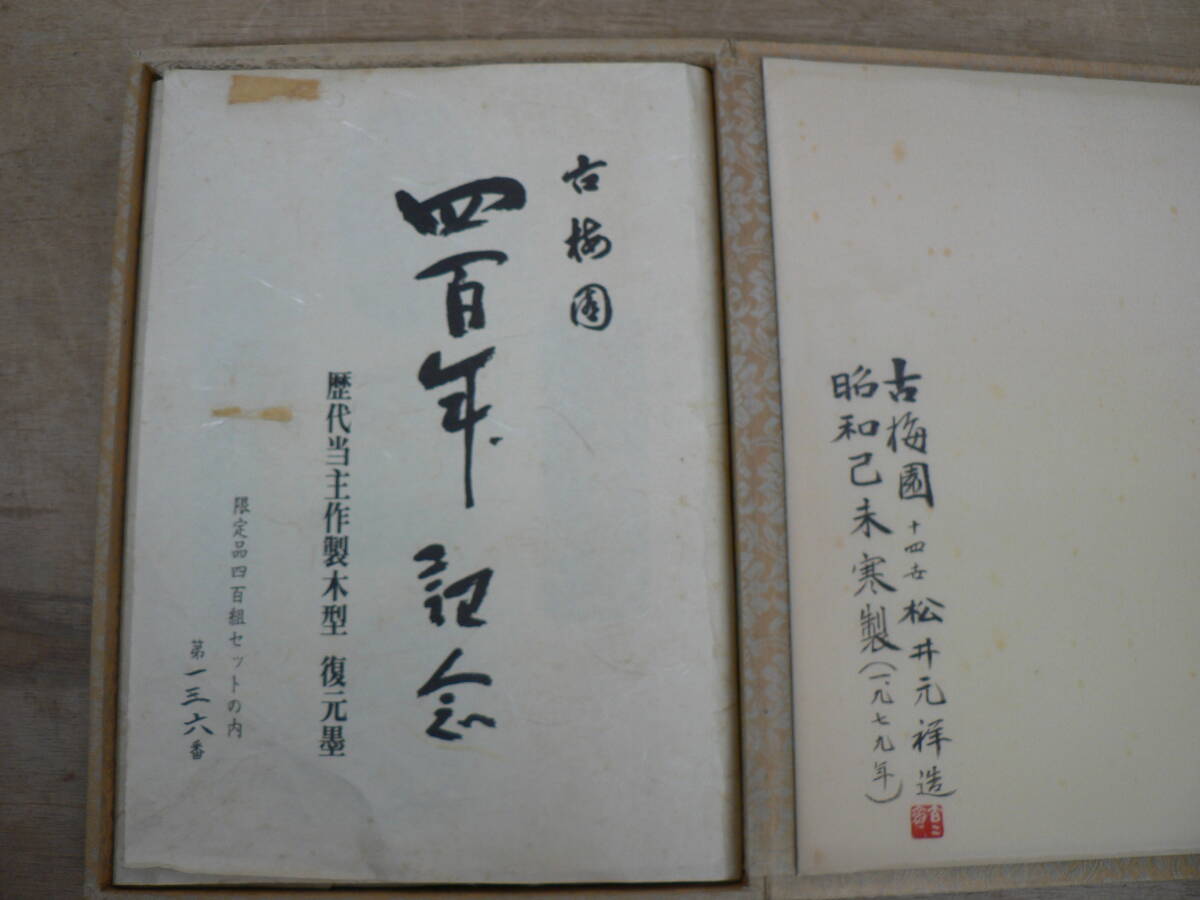 古梅園
四百年記念
歴代当主作製木型 復元墨
限定品四百組セットの内
第一三六番
古梅園十四世松井元祥造
昭和己未寒製(一九七九年)